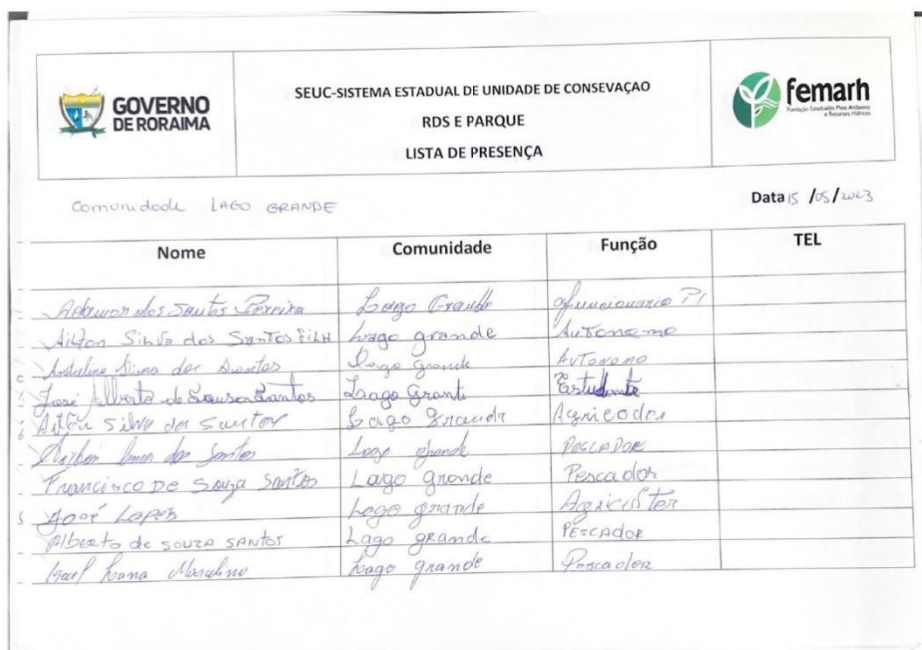 GOVERNO
DE RORAIMA
SEUC-SISTEMA ESTADUAL DE UNIDADE DE CONSEVAÇAO
RDS E PARQUE
LISTA DE PRESENÇA
femarh
Comunidade LAGO GRANDE
Data 15 /05/2023
Nome Comunidade Função TEL
dos Santos Pereira Lago Grande funcionario
Ailton Silva dos Santos FILH Lago grande Autonomo
dos Santos Lago Grande AUTONOMO
José Alberto de Sousa Santos Lago Granti Estudante
Silva dos Santos Lago Grande Agricodor
dos Santos Lago grande PESCADOR
Francisco DE Souza Santos Lago grande Pescador
José Lopes Lago grande Agricultor
Alberto de SOUZA SANTOS Lago GRANDE PESCADOR
Marculino Lago grande Pescador